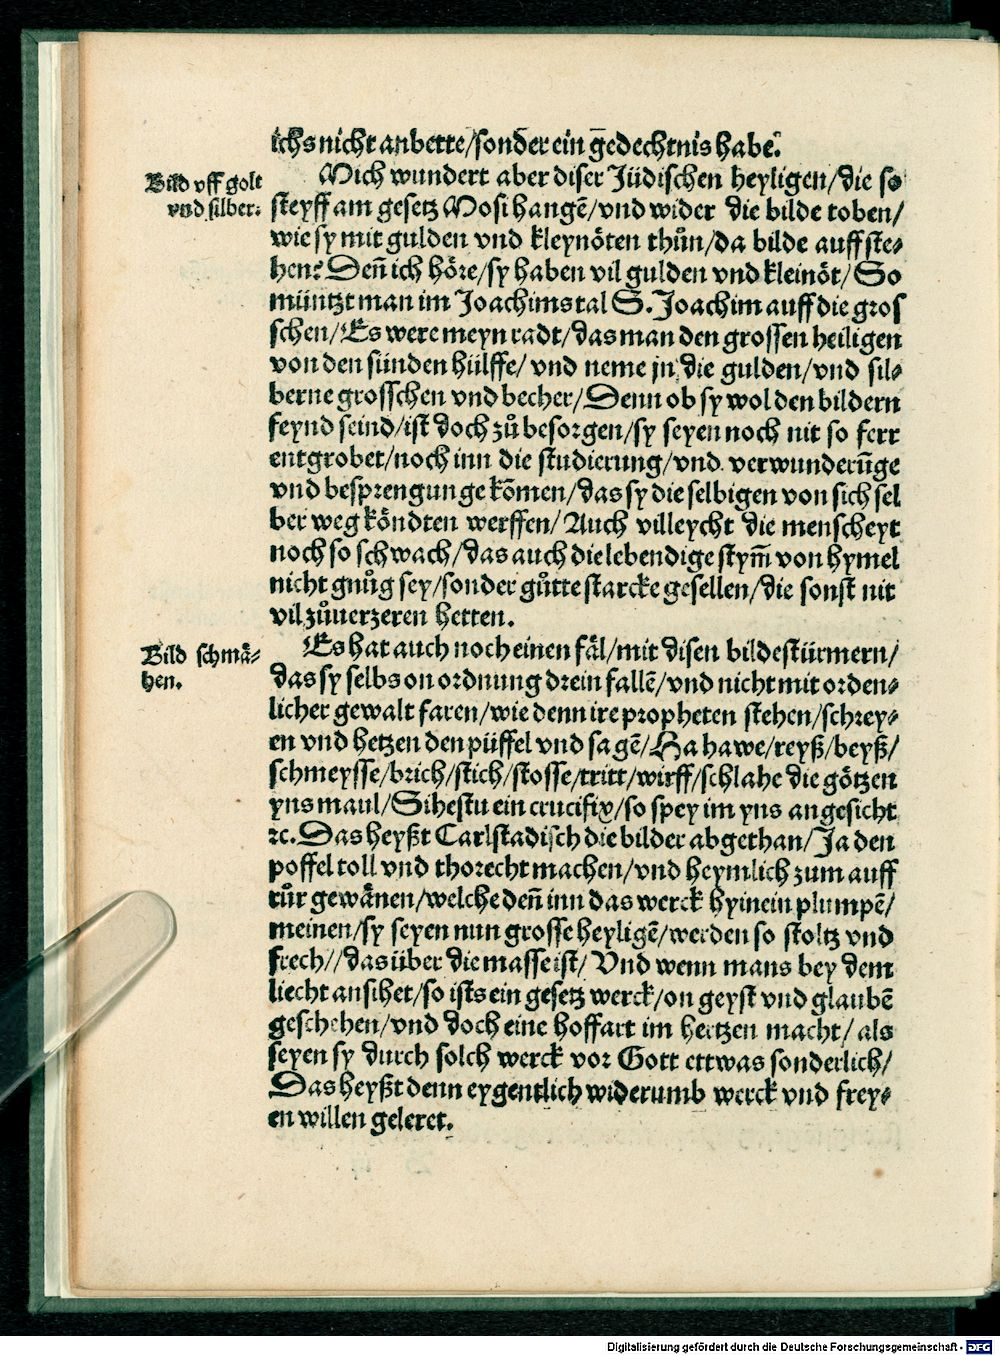 ichs nicht anbette/sonder ein gedechtnis habe.
Bild vff golt
vnd silber.
Mich wundert aber diser Jüdischen heyligen/die so
steyff am gesetz Mosi hangẽ/vnd wider die bilde toben/
wie sy mit gulden vnd kleynöten thůn/da bilde auff ste⸗
hen? Deñ ich höre/sy haben vil gulden vnd kleinöt/So
müntzt man im Joachimstal S. Joachim auff die gros
schen/Es were meyn radt/das man den grossen heiligen
von den sünden hülffe/ vnd neme jn die gulden/vnd sil⸗
berne grosschen vnd becher/Denn ob sy wol den bildern
feynd seind/ist doch zů besorgen/sy seyen noch nit so ferr
entgrobet/noch inn die studierung/vnd verwunderũge
vnd besprengunge kõmen/das sy die selbigen von sich sel
ber weg köndten werffen/Auch villeycht die menscheyt
noch so schwach/das auch die lebendige stym̃ von hymel
nicht gnůg sey/sonder gůtte starcke gesellen/die sonst nit
vil zůuerzeren hetten.
Bild schmä⸗
hen.
Es hat auch noch einen fäl/mit disen bildestürmern/
das sy selbs on ordnung drein fallẽ/vnd nicht mit orden⸗
licher gewalt faren/wie denn ire propheten stehen/schrey⸗
en vnd hetzen den püffel vnd sagẽ/Ha hawe/reyß/beyß/
schmeysse/brich/stich/stosse/tritt/wirff/schlahe die götzen
yns maul/Sihestu ein crucifix/so spey im yns angesicht
ꝛc. Das heyßt Carlstadisch die bilder abgethan/Ja den
poffel toll vnd thorecht machen/vnd heymlich zum auff
růr gewänen/welche deñ inn das werck hyinein plumpẽ/
meinen/sy seyen nun grosse heyligẽ/werden so stoltz vnd
frech//das über die masse ist/ Vnd wenn mans bey dem
liecht ansihet/so ists ein gesetz werck/on geyst vnd glaubẽ
geschehen/vnd doch eine hoffart im hertzen macht/ als
seyen sy durch solch werck vor Gott ettwas sonderlich/
Das heyßt denn eygentlich widerumb werck vnd frey⸗
en willen geleret.
Digitalisierung gefördert durch die Deutsche Forschungsgemeinschaft - DFG